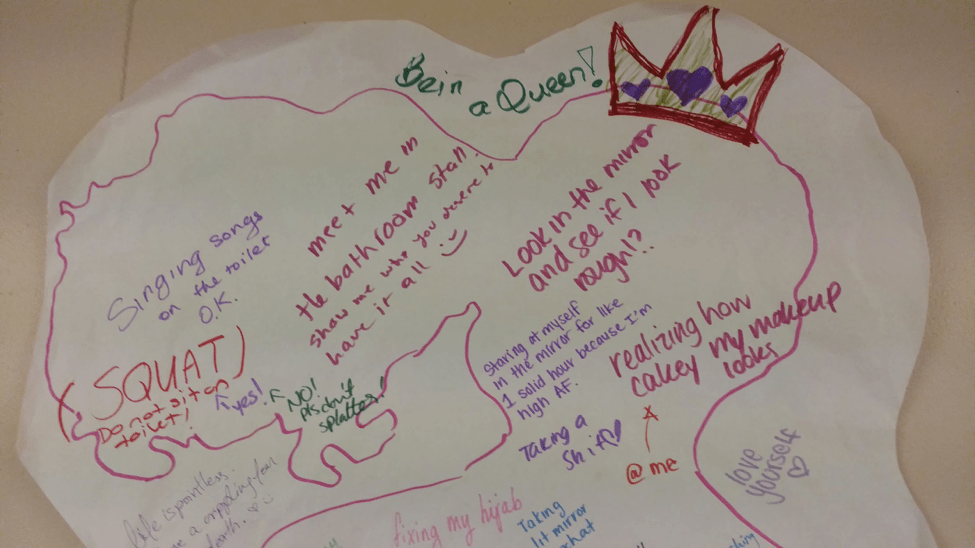 Bein
a Queen!
meet me in
the bathroom stall
show me why you deserve to
have it all
Look in the mirror
and see if I look
rough!?
Singing songs
on the toilet
O.K.
(SQUAT)
Do not sit on
toilet!
yes!
NO!
pls don't
splatter!
Staring at myself
in the mirror for like
1 solid hour because I'm
high AF.
realizing how
cakey my makeup
looks
@me
Taking a
shit
love
yourself
life is pointless
fixing my hijab
Taking
lit mirror